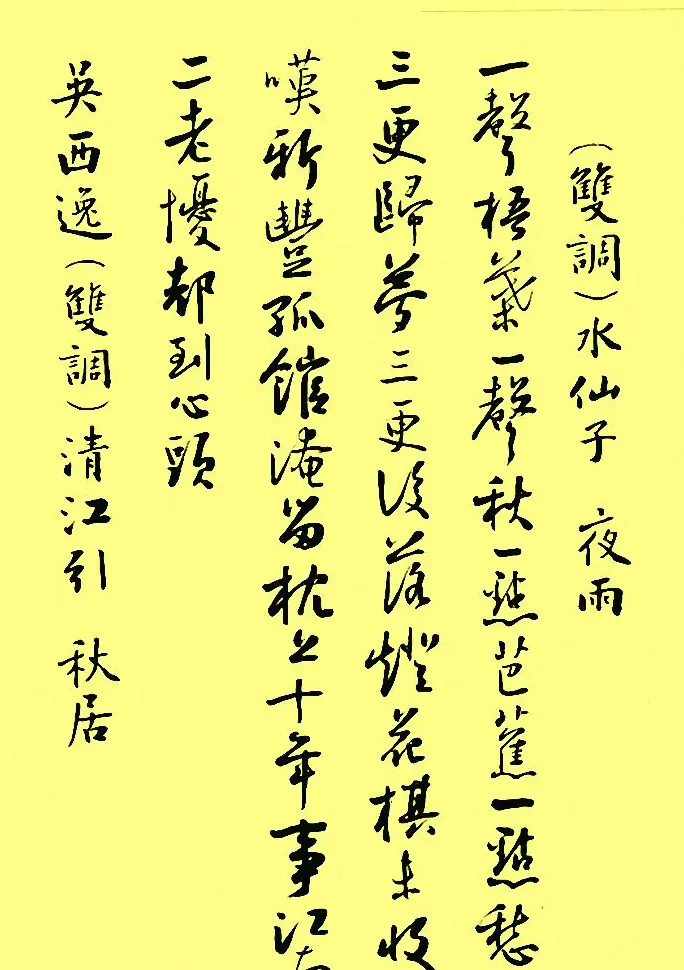 （雙調）水仙子　夜雨
一聲梧葉一聲秋一點芭蕉一點愁
三更歸夢三更後落燈花棋未收
嘆新豐孤館淹留枕上十年事江
二老擾都到心頭
吳西逸（雙調）清江引　秋居